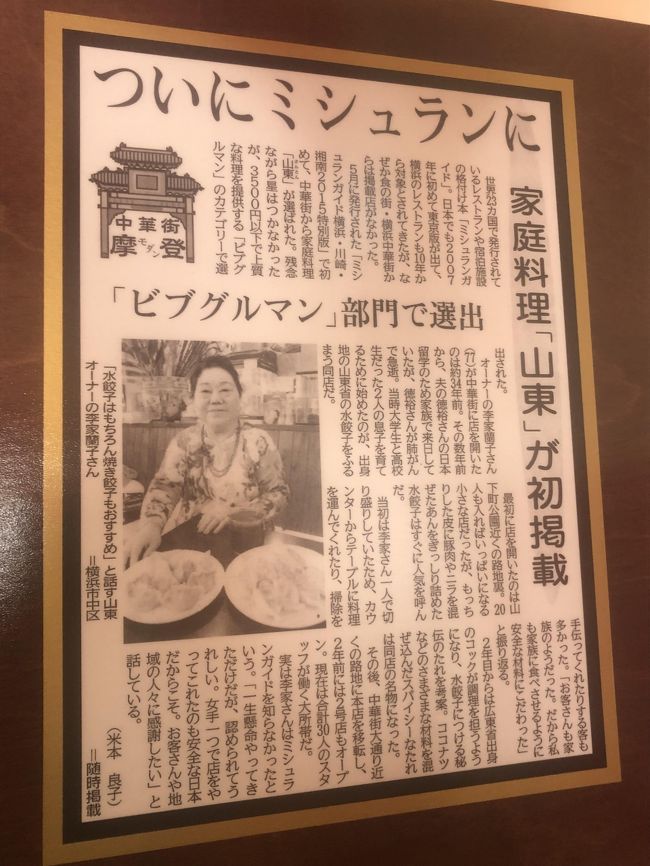 ついにミシュランに
家庭料理「山東」が初掲載
「ビブグルマン」部門で選出
中華街
摩登
モダン
世界23カ国で発行されて
いるレストランや宿泊施設
の格付け本「ミシュランガ
イド」。日本でも2007
年に初めて東京版が出て、
横浜のレストランも10年か
ら対象とされてきたが、な
ぜか食の街・横浜中華街か
らは掲載店がなかった。
5月に発行された「ミシ
ュランガイド横浜・川崎・
湘南2015特別版」で初
めて、中華街から家庭料理
「山東」が選ばれた。残念
ながら星はつかなかった
が、3500円以下で上質
な料理を提供する「ビブグ
ルマン」のカテゴリーで選
出された。
オーナーの李家蘭子さん
(77)が中華街に店を開いた
のは約34年前。その数年前
から、夫の徳裕さんの日本
留学のため家族で来日して
いたが、徳裕さんが肺がん
で急逝。当時大学生と高校
生だった2人の息子を育て
るために始めたのが、出身
地の山東省の水餃子をふる
まう同店だ。
最初に店を開いたのは山
下町公園近くの路地裏。20
人も入ればいっぱいになる
小さな店だったが、もっち
りした皮に豚肉やニラを混
ぜたあんをぎっしり詰めた
水餃子はすぐに人気を呼ん
だ。
当初は李家さん一人で切
り盛りしていたため、カウ
ンターからテーブルに料理
を運んでくれたり、掃除を
手伝ってくれたりする客も
多かった。「お客さんも家
族のようだった。だから私
も家族に食べさせるように
安全な材料にこだわった」
と振り返る。
2年目からは広東省出身
のコックが調理を担うよう
になり、水餃子につける秘
伝のたれを考案。ココナツ
などのさまざまな材料を混
ぜ込んだスパイシーなたれ
は同店の名物になった。
その後、中華街大通り近
くの路地に本店を移転し、
2年前には2号店もオープ
ン。現在は合計30人のスタ
ッフが働く大所帯だ。
実は李家さんはミシュラ
ンガイドを知らなかったと
いう。「一生懸命やってき
ただけだが、認められてう
れしい。女手一つで店をや
ってこれたのも安全な日本
だからこそ。お客さんや地
域の人々に感謝したい」と
話している。
(米本 良子)
＝随時掲載
「水餃子はもちろん焼き餃子もおすすめ」と話す山東
オーナーの李家蘭子さん
＝横浜市中区